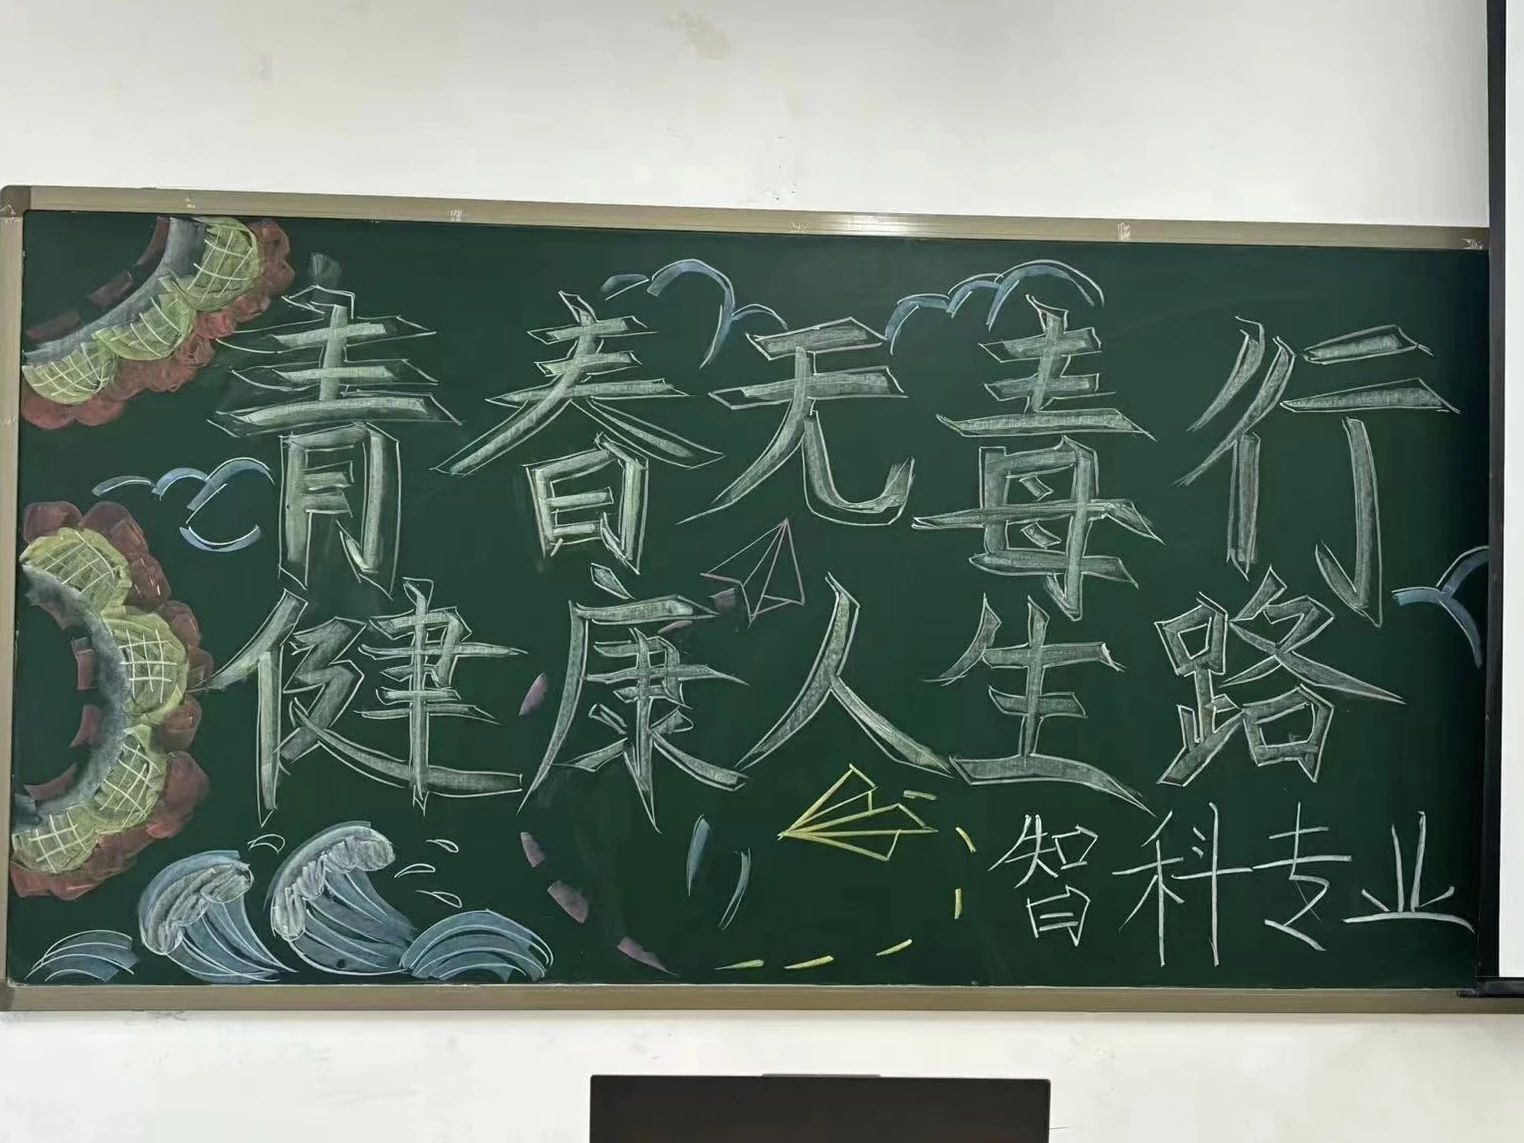 青春无毒行
健康人生路
智科专业